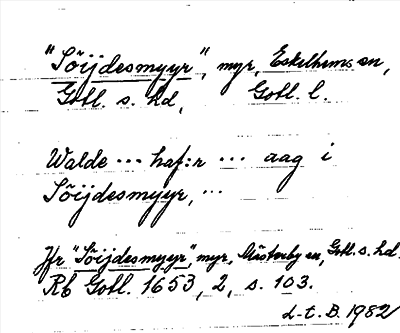 "Söijdesmyyr", myr, Eskelhems sn,
Gotl. s. hd, Gotl. l.
Walde --- haf:r --- aag i
Söijdesmyyr, ---
Jfr "Söijdesmyyr", myr, Mästerby sn, Gotl. s. hd.
Rb Gotl. 1653, 2, s. 103.
L.t.B. 1982